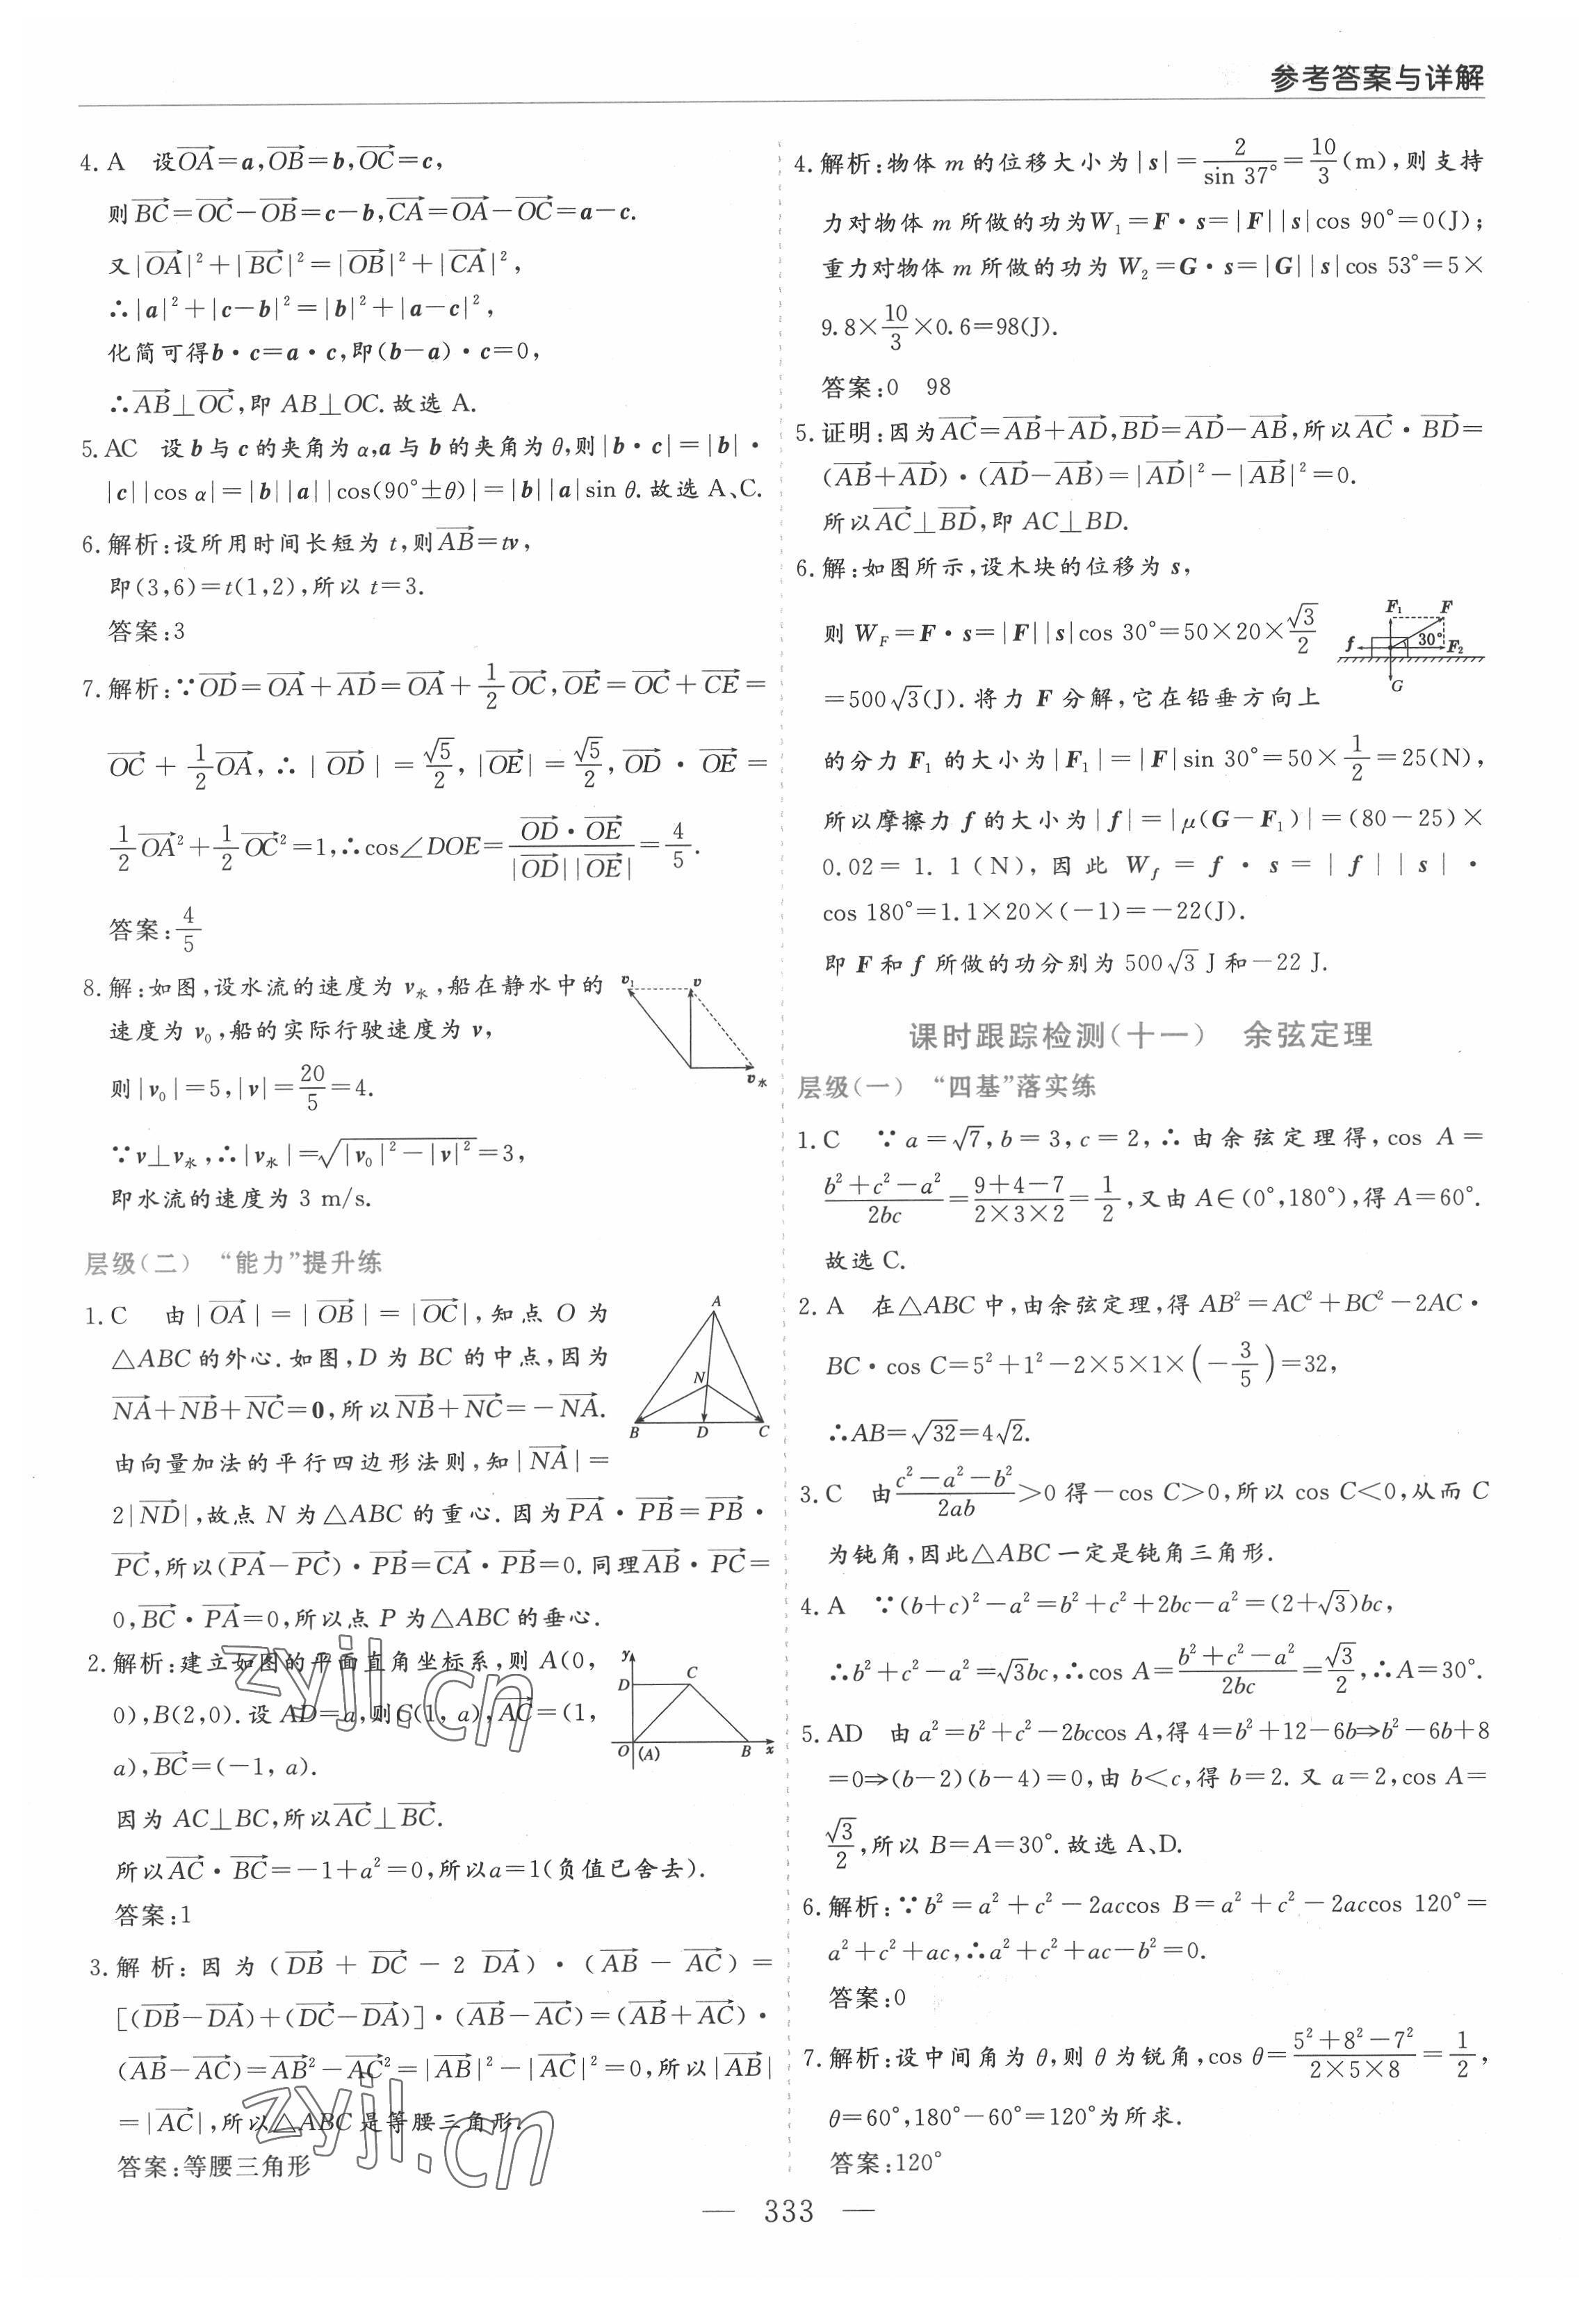 参考答案与详解
4. A 设$\overrightarrow{OA}=a,\overrightarrow{OB}=b,\overrightarrow{OC}=c$,
则$\overrightarrow{BC}=\overrightarrow{OC}-\overrightarrow{OB}=c-b,\overrightarrow{CA}=\overrightarrow{OA}-\overrightarrow{OC}=a-c$.
又$|\overrightarrow{OA}|^2+|\overrightarrow{BC}|^2=|\overrightarrow{OB}|^2+|\overrightarrow{CA}|^2$,
∴$|a|^2+|c-b|^2=|b|^2+|a-c|^2$,
化简可得$b·c=a·c$,即$(b-a)·c=0$,
∴$\overrightarrow{AB}⊥\overrightarrow{OC}$,即 AB⊥OC. 故选 A.
5. AC 设 b 与 c 的夹角为 α,a 与 b 的夹角为 θ,则|b·c|=|b|·
|c||cos α|=|b||a||cos(90°±θ)|=|b||a|sin θ. 故选 A、C.
6. 解析:设所用时间长短为 t,则$\overrightarrow{AB}=tv$,
即(3,6)=t(1,2),所以 t=3.
答案:3
7. 解析:∵$\overrightarrow{OD}=\overrightarrow{OA}+\overrightarrow{AD}=\overrightarrow{OA}+\frac{1}{2}\overrightarrow{OC},\overrightarrow{OE}=\overrightarrow{OC}+\overrightarrow{CE}=$
$\overrightarrow{OC}+\frac{1}{2}\overrightarrow{OA}$, ∴$|\overrightarrow{OD}|=\frac{\sqrt{5}}{2},|\overrightarrow{OE}|=\frac{\sqrt{5}}{2},\overrightarrow{OD}·\overrightarrow{OE}=$
$\frac{1}{2}\overrightarrow{OA}^2+\frac{1}{2}\overrightarrow{OC}^2=1$,∴$\cos∠DOE=\frac{\overrightarrow{OD}·\overrightarrow{OE}}{|\overrightarrow{OD}||\overrightarrow{OE}|}=\frac{4}{5}$.
答案:$\frac{4}{5}$
8. 解:如图,设水流的速度为 $v_水$,船在静水中的
速度为 $v_0$,船的实际行驶速度为 v,
则$|v_0|=5,|v|=\frac{20}{5}=4$.
∵$v⊥v_水$,∴$|v_水|=\sqrt{|v_0|^2-|v|^2}=3$,
即水流的速度为 3 m/s.
$v_1$ v $v_水$
层级(二) “能力”提升练
1. C 由$|\overrightarrow{OA}|=|\overrightarrow{OB}|=|\overrightarrow{OC}|$,知点 O 为
△ABC 的外心. 如图,D 为 BC 的中点,因为
$\overrightarrow{NA}+\overrightarrow{NB}+\overrightarrow{NC}=0$,所以$\overrightarrow{NB}+\overrightarrow{NC}=-\overrightarrow{NA}$.
由向量加法的平行四边形法则,知$|\overrightarrow{NA}|=$
$2|\overrightarrow{ND}|$,故点 N 为△ABC 的重心. 因为$\overrightarrow{PA}·\overrightarrow{PB}=\overrightarrow{PB}·$
$\overrightarrow{PC}$,所以$(\overrightarrow{PA}-\overrightarrow{PC})·\overrightarrow{PB}=\overrightarrow{CA}·\overrightarrow{PB}=0$. 同理$\overrightarrow{AB}·\overrightarrow{PC}=$
$0,\overrightarrow{BC}·\overrightarrow{PA}=0$,所以点 P 为△ABC 的垂心.
A N B D C
2. 解析:建立如图的平面直角坐标系,则 A(0,
0),B(2,0). 设 AD=a,则 C(1, a),$\overrightarrow{AC}$=(1,
a),$\overrightarrow{BC}$=(-1, a).
因为 AC⊥BC,所以$\overrightarrow{AC}⊥\overrightarrow{BC}$.
所以$\overrightarrow{AC}·\overrightarrow{BC}=-1+a^2=0$,所以a=1(负值已舍去).
答案:1
y D C O (A) B x
3. 解析: 因为$(\overrightarrow{DB}+\overrightarrow{DC}-2\overrightarrow{DA})·(\overrightarrow{AB}-\overrightarrow{AC})=$
$[(\overrightarrow{DB}-\overrightarrow{DA})+(\overrightarrow{DC}-\overrightarrow{DA})]·(\overrightarrow{AB}-\overrightarrow{AC})=(\overrightarrow{AB}+\overrightarrow{AC})·$
$(\overrightarrow{AB}-\overrightarrow{AC})=\overrightarrow{AB}^2-\overrightarrow{AC}^2=|\overrightarrow{AB}|^2-|\overrightarrow{AC}|^2=0$,所以$|\overrightarrow{AB}|$
$=|\overrightarrow{AC}|$,所以△ABC 是等腰三角形.
答案:等腰三角形
4. 解析:物体 m 的位移大小为$|s|=\frac{2}{\sin 37°}=\frac{10}{3}$(m),则支持
力对物体 m 所做的功为$W_1=F·s=|F||s|\cos 90°=0$(J);
重力对物体 m 所做的功为 $W_2=G·s=|G||s|\cos 53°=5×$
$9.8×\frac{10}{3}×0.6=98$(J).
答案:0 98
5. 证明:因为$\overrightarrow{AC}=\overrightarrow{AB}+\overrightarrow{AD},\overrightarrow{BD}=\overrightarrow{AD}-\overrightarrow{AB}$,所以$\overrightarrow{AC}·\overrightarrow{BD}=$
$(\overrightarrow{AB}+\overrightarrow{AD})·(\overrightarrow{AD}-\overrightarrow{AB})=|\overrightarrow{AD}|^2-|\overrightarrow{AB}|^2=0$.
所以$\overrightarrow{AC}⊥\overrightarrow{BD}$,即 AC⊥BD.
6. 解:如图所示,设木块的位移为 s,
则 $W_F=F·s=|F||s|\cos 30°=50×20×\frac{\sqrt{3}}{2}$
$=500\sqrt{3}$(J). 将力 F 分解,它在铅垂方向上
的分力 $F_1$ 的大小为$|F_1|=|F|\sin 30°=50×\frac{1}{2}=25$(N),
所以摩擦力 f 的大小为$|f|=|μ(G-F_1)|=(80-25)×$
0.02=1.1(N), 因此 $W_f=f·s=|f||s|·$
cos 180°=1.1×20×(-1)=-22(J).
即 F 和 f 所做的功分别为 $500\sqrt{3}$ J 和-22 J.
$F_1$ F f 30° $F_2$ G
课时跟踪检测(十一) 余弦定理
层级(一) “四基”落实练
1. C ∵$a=\sqrt{7},b=3,c=2$,∴由余弦定理得,cos A=
$\frac{b^2+c^2-a^2}{2bc}=\frac{9+4-7}{2×3×2}=\frac{1}{2}$,又由 A∈(0°,180°),得 A=60°.
故选 C.
2. A 在△ABC 中,由余弦定理,得 $AB^2=AC^2+BC^2-2AC·$
$BC·\cos C=5^2+1^2-2×5×1×(-\frac{3}{5})=32$,
∴$AB=\sqrt{32}=4\sqrt{2}$.
3. C 由$\frac{c^2-a^2-b^2}{2ab}>0$ 得-cos C>0,所以 cos C<0,从而 C
为钝角,因此△ABC 一定是钝角三角形.
4. A ∵$(b+c)^2-a^2=b^2+c^2+2bc-a^2=(2+\sqrt{3})bc$,
∴$b^2+c^2-a^2=\sqrt{3}bc$,∴$\cos A=\frac{b^2+c^2-a^2}{2bc}=\frac{\sqrt{3}}{2}$,∴A=30°.
5. AD 由 $a^2=b^2+c^2-2bc\cos A$,得 $4=b^2+12-6b⇒b^2-6b+8$
=0⇒(b-2)(b-4)=0,由 b<c,得 b=2. 又 a=2,cos A=
$\frac{\sqrt{3}}{2}$,所以 B=A=30°. 故选 A、D.
6. 解析:∵$b^2=a^2+c^2-2ac\cos B=a^2+c^2-2ac\cos 120°=$
$a^2+c^2+ac$,∴$a^2+c^2+ac-b^2=0$.
答案:0
7. 解析:设中间角为 θ,则 θ 为锐角,$\cos θ=\frac{5^2+8^2-7^2}{2×5×8}=\frac{1}{2}$,
θ=60°,180°-60°=120°为所求.
答案:120°
zyjl.cn
zyjl.cn
— 333 —